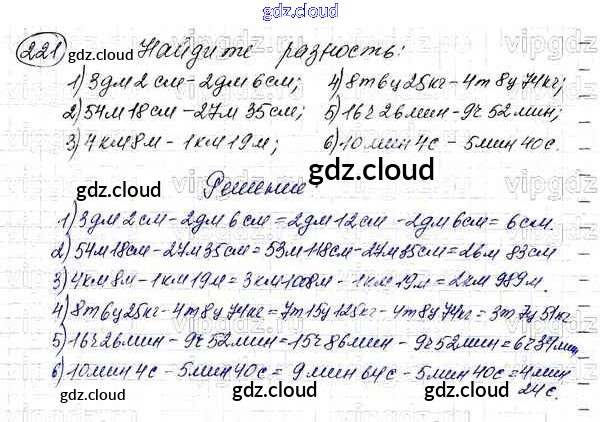 gdz.cloud
221 Найдите разность:
gdz.cloud gdz.cloud
1) 3дм2см-2дм6см; 4) 8т6ц25кг-4т8ц74кг;
2) 54м18см-27м35см; 5) 16ч26мин-9ч52мин;
3) 4км8м-1км19м; 6) 10мин4с-5мин40с.
gdz.cloud
gdz.cloud Решение: gdz.cloud
1) 3дм2см-2дм6см=2дм12см-2дм6см=6см.
2) 54м18см-27м35см=53м118см-27м35см=26м83см
3) 4км8м-1км19м=3км1008м-1км19м=2км989м.
4) 8т6ц25кг-4т8ц74кг=7т15ц125кг-4т8ц74кг=3т7ц51кг
5) 16ч26мин-9ч52мин=15ч86мин-9ч52мин=6ч34мин
6) 10мин4с-5мин40с=9мин64с-5мин40с=4мин
24с.
gdz.cloud gdz.cloud gdz.cloud